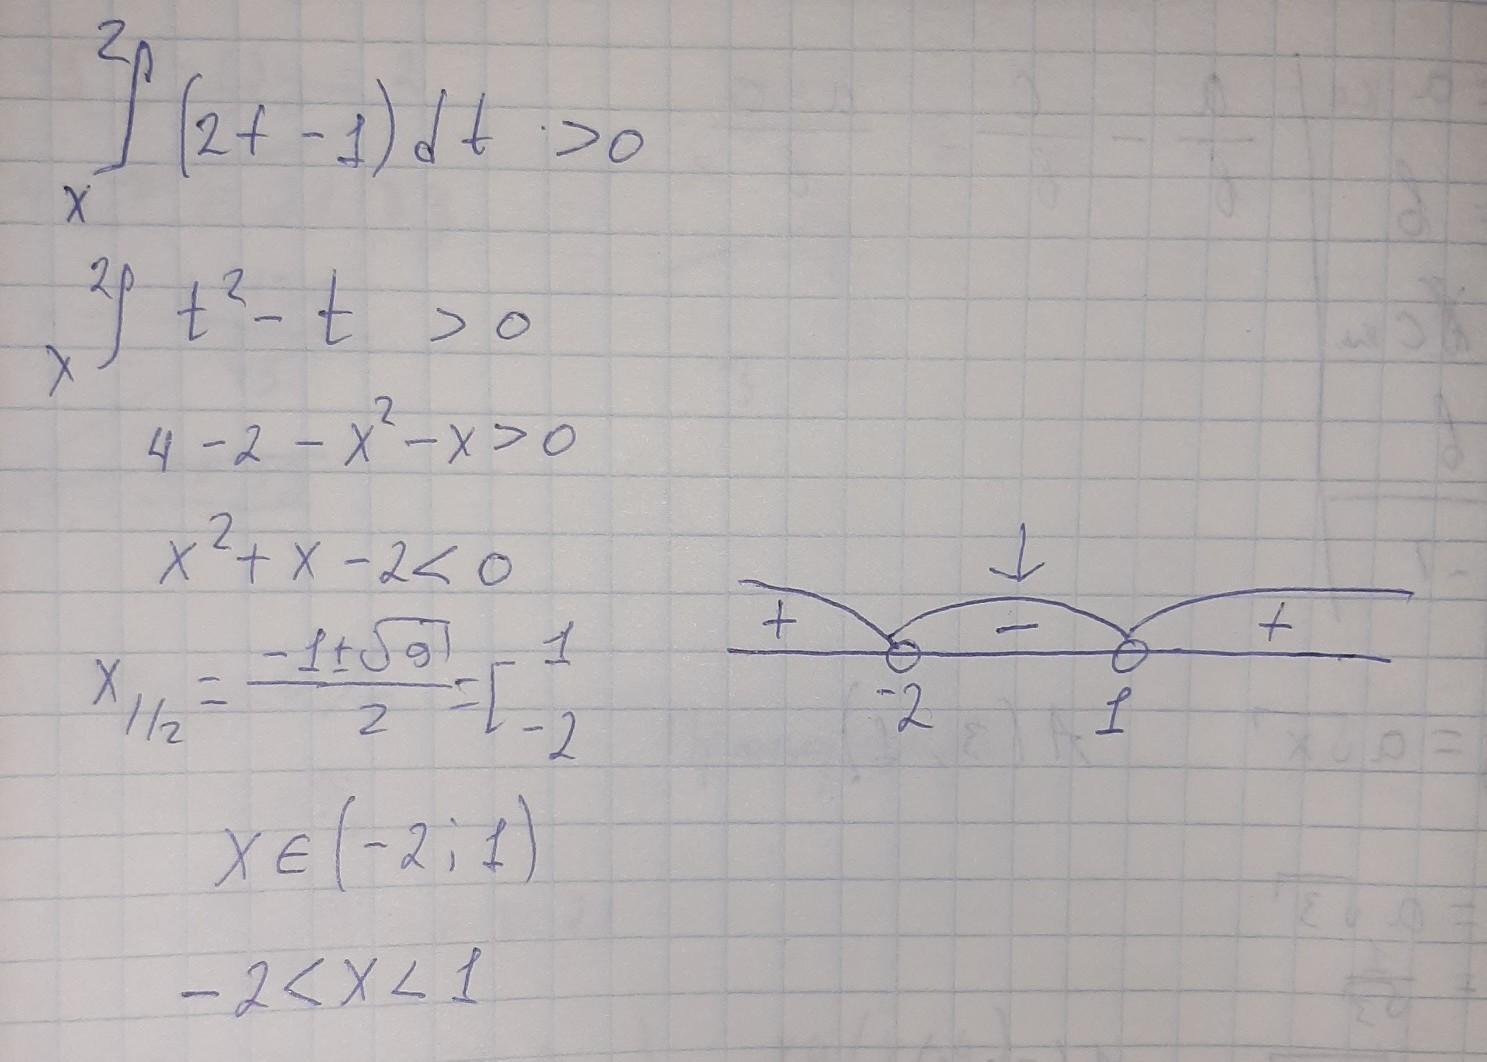 2∫x (2t - 1) dt > 0
2∫x t² - t > 0
4 - 2 - x² - x > 0
x² + x - 2 < 0
x₁/₂ = (-1 ± √9)/2 = [ 1 -2
+ - +
-2 1
x ∈ (-2; 1)
-2 < x < 1